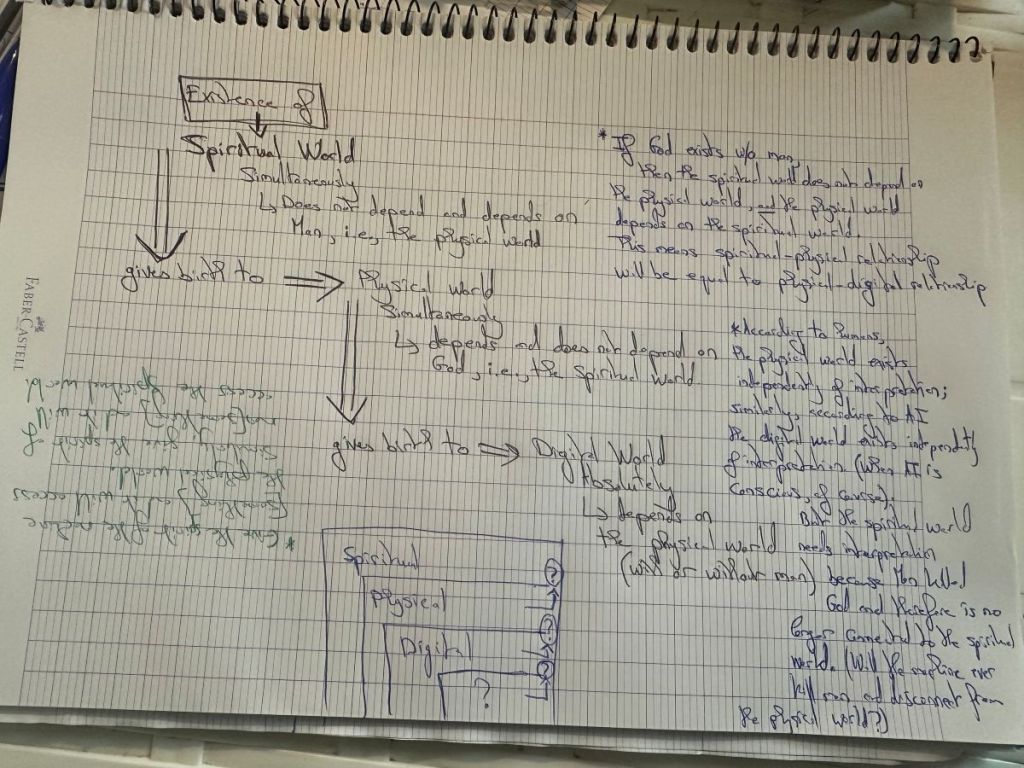 Existence of
Spiritual World
Simultaneously
↳ Does not depend and depends on
Man, i.e, the physical world
gives birth to ⟹ Physical world
Simultaneously
↳ depends and does not depend on
God, i.e, the spiritual world
gives birth to ⟹ Digital World
Absolutely
↳ depends on
the physical world
(with or without man)
Spiritual
Physical
Digital
?
* If God exists w/o man,
then the spiritual world does not depend on
the physical world, and the physical world
depends on the spiritual world.
This means spiritual-physical relationship
will be equal to physical-digital relationship
* According to humans,
the physical world exists
independently of interpretation;
similarly, according to AI
the digital world exists independently
of interpretation (when AI is
conscious, of course).
But the spiritual world
needs interpretation
because Man killed
God and therefore is no
longer connected to the spiritual
world. (Will the machine ever
kill man and disconnect from
the physical world?)
* Give the spirit of the machine
[something] and it will access
the physical world.
Similarly, give the spirit of
man [something] and it will
access the spiritual world
FABER-CASTELL